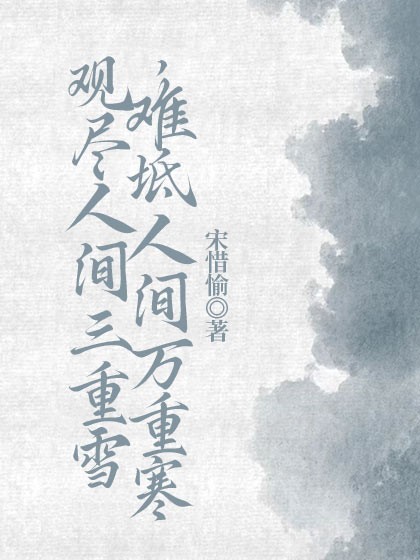 观尽人间三重雪
，难坻人间万重寒
宋惜愉◎著